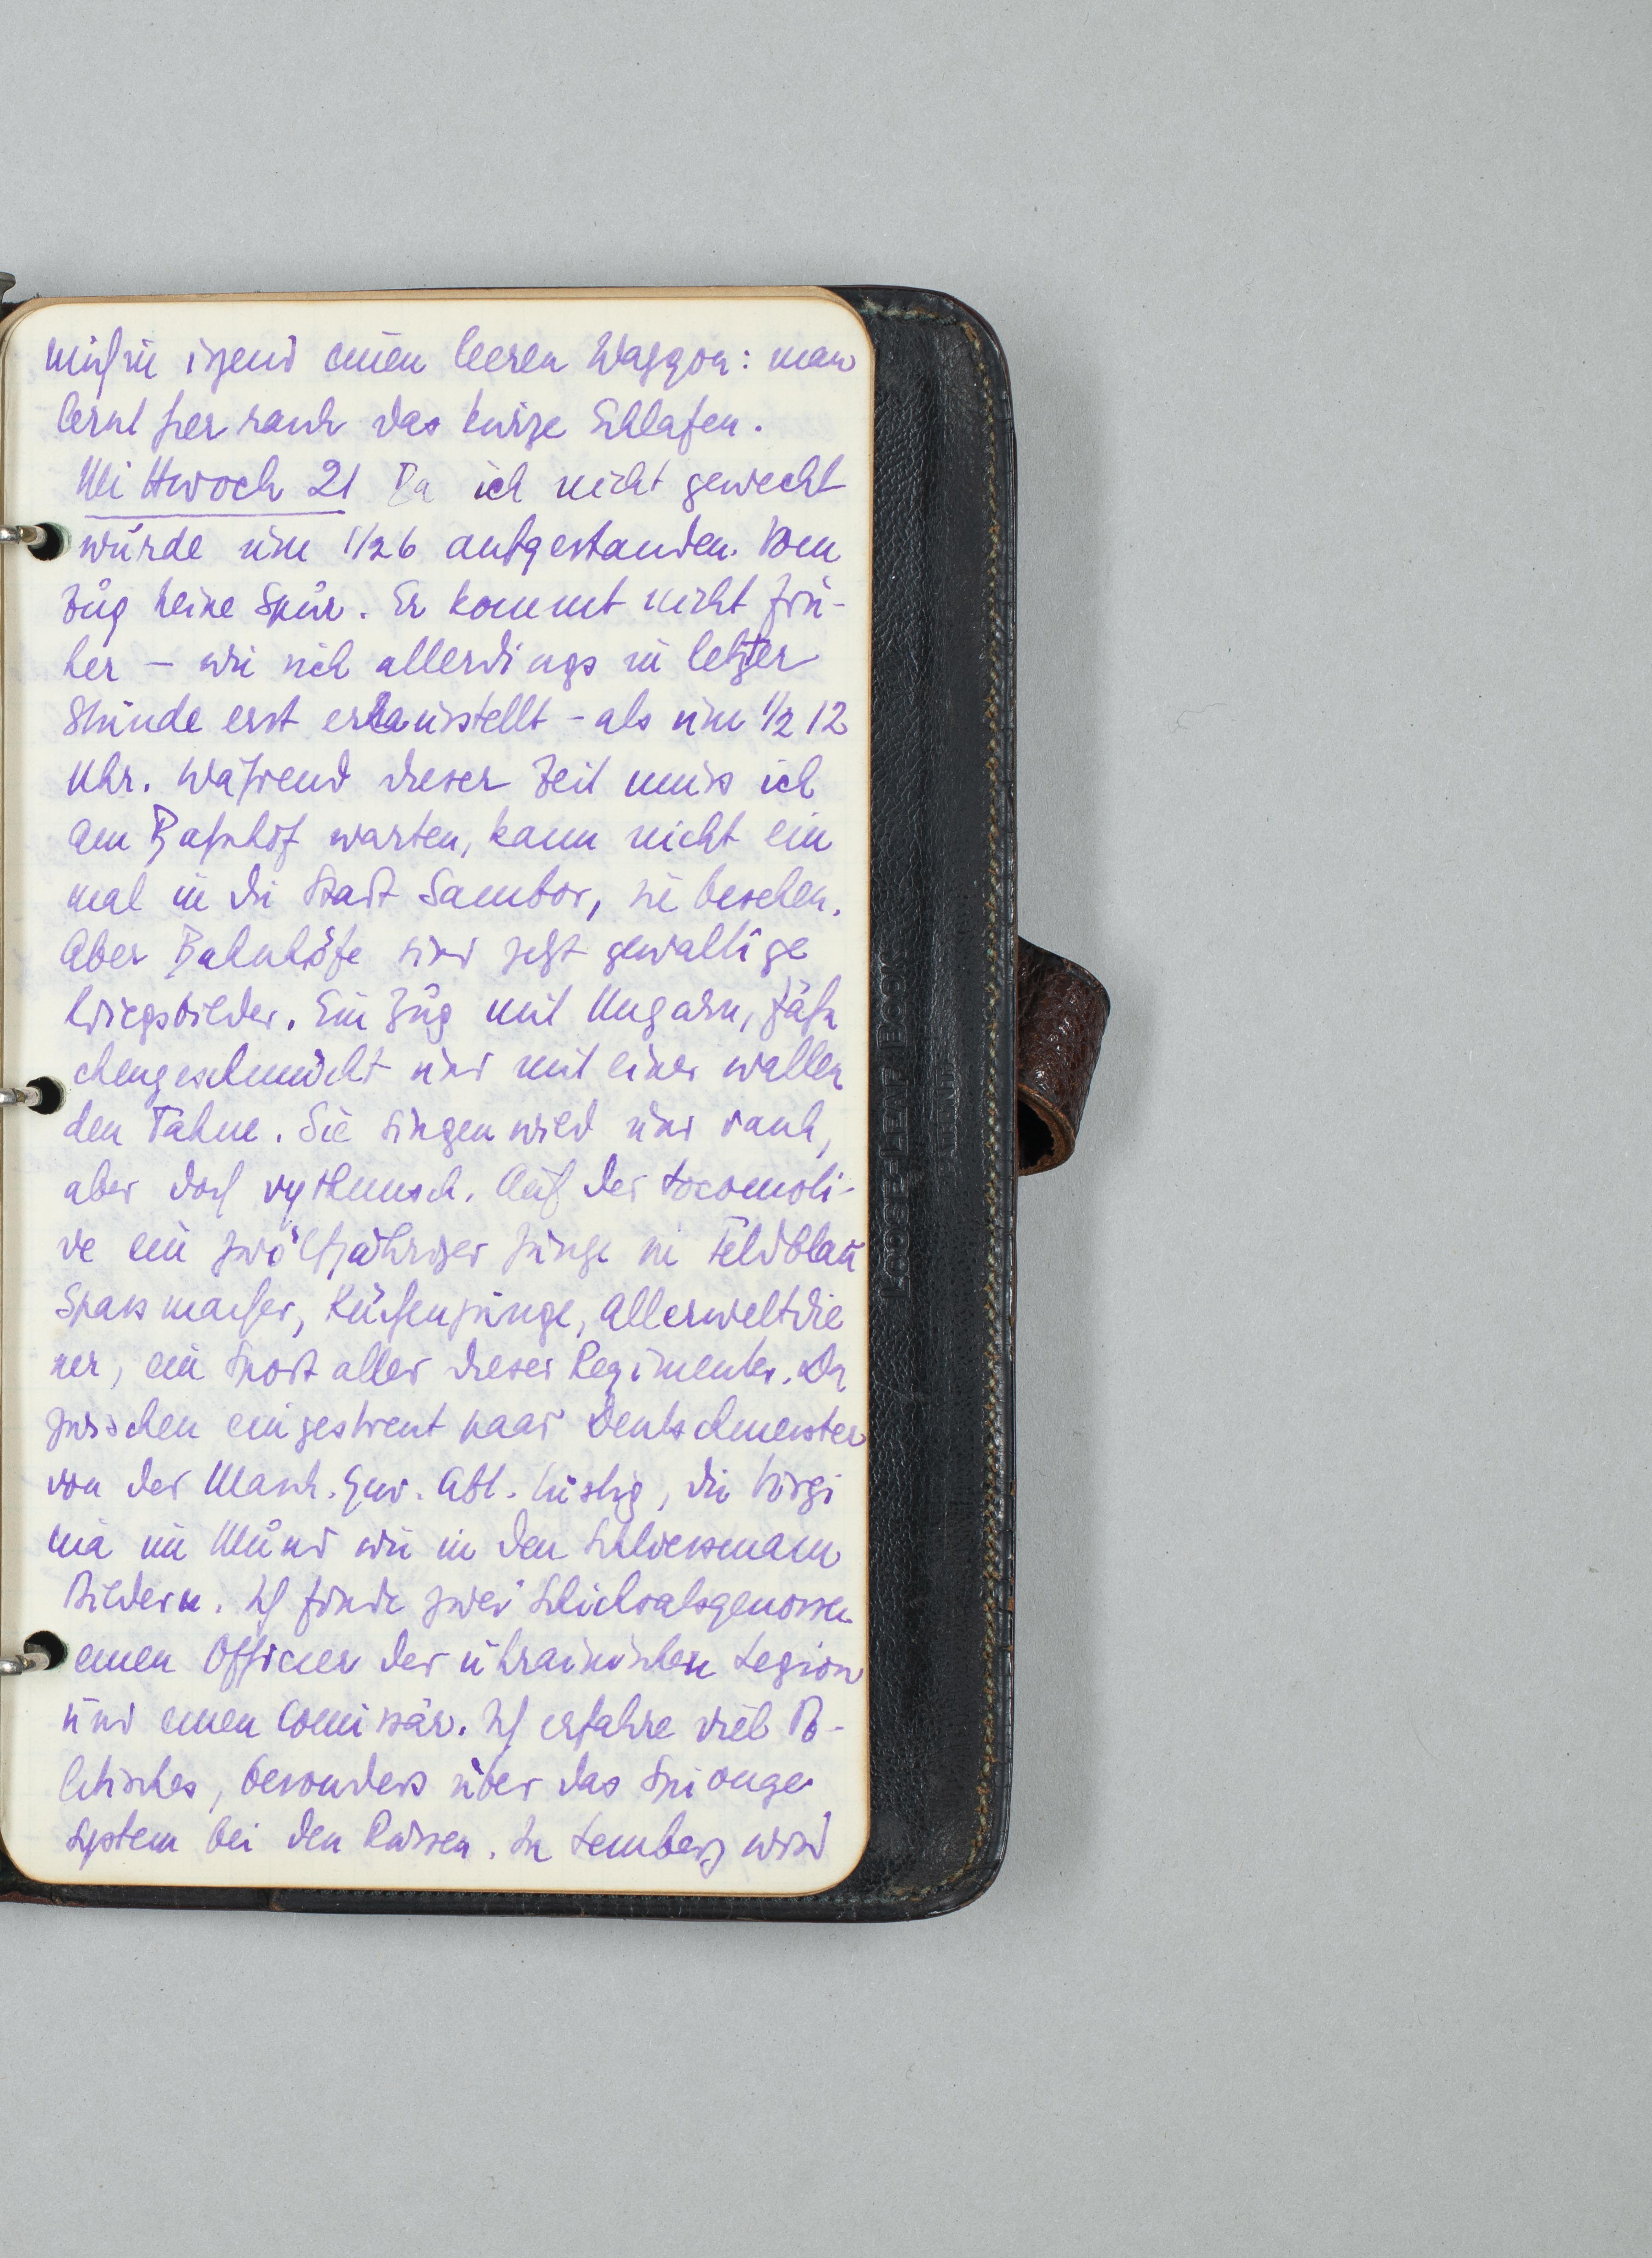 mich in irgend einen leeren Waggon: man
lernt hier rauh das kurze Schlafen.
Mittwoch 21 Da ich nicht geweckt
wurde um 1/26 aufgestanden. Vom
Zug keine Spur. Er kommt nicht frü-
her – wie sich allerdings in letzter
Stunde erst erausstellt – als um 1/2 12
Uhr. Während dieser Zeit muss ich
am Bahnhof warten, kann nicht ein
mal in die Stadt Sambor, sie besehen.
Aber Bahnhöfe sind jetzt gewaltige
Kriegsbilder. Ein Zug mit Ungarn, fähn
chengeschmückt und mit einer wallen
den Fahne. Sie singen wild und rauh,
aber doch rythmisch. Auf der Locomoti-
ve ein zwölfjähriger Junge in Feldblau
Spassmacher, Küchenjunge, Allerweltdie
ner, ein Sport aller dieser Regimenter. Da
zwischen eingestreut paar Deutschmeister
von der Masch. Gew. Abt. lustig, die Virgi
nia im Mund wie in den Schliessmann
Bildern. Ich finde zwei Schicksalsgenossen
einen Officier der ukrainischen Legion
und einen Comissär. Ich erfahre viel Po-
litisches, besonders über das Spionage
System bei den Russen. In Lemberg wird
LOOSE-LEAF BOOK